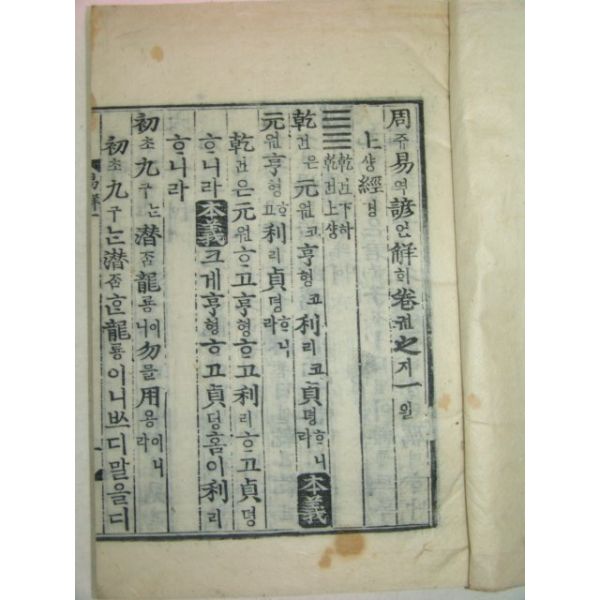 周쥬易역諺언解ᄒᆡ卷권之지一일
上샹經경
乾건下하乾건上샹
乾건은元원코亨형코利리코貞뎡ᄒᆞ니라本義
元원亨형ᄒᆞ고利리貞뎡ᄒᆞ니라
乾건은元원ᄒᆞ고亨형ᄒᆞ고利리ᄒᆞ고貞뎡
ᄒᆞ니라本義크게亨형ᄒᆞ고貞뎡홈이利리
ᄒᆞ니라
初초九구ᄂᆞᆫ潛ᄌᆞᆷ龍룡이니勿믈用용이니라
初초九구ᄂᆞᆫ潛ᄌᆞᆷᄒᆞᆫ龍룡이니ᄡᅳ디말을디